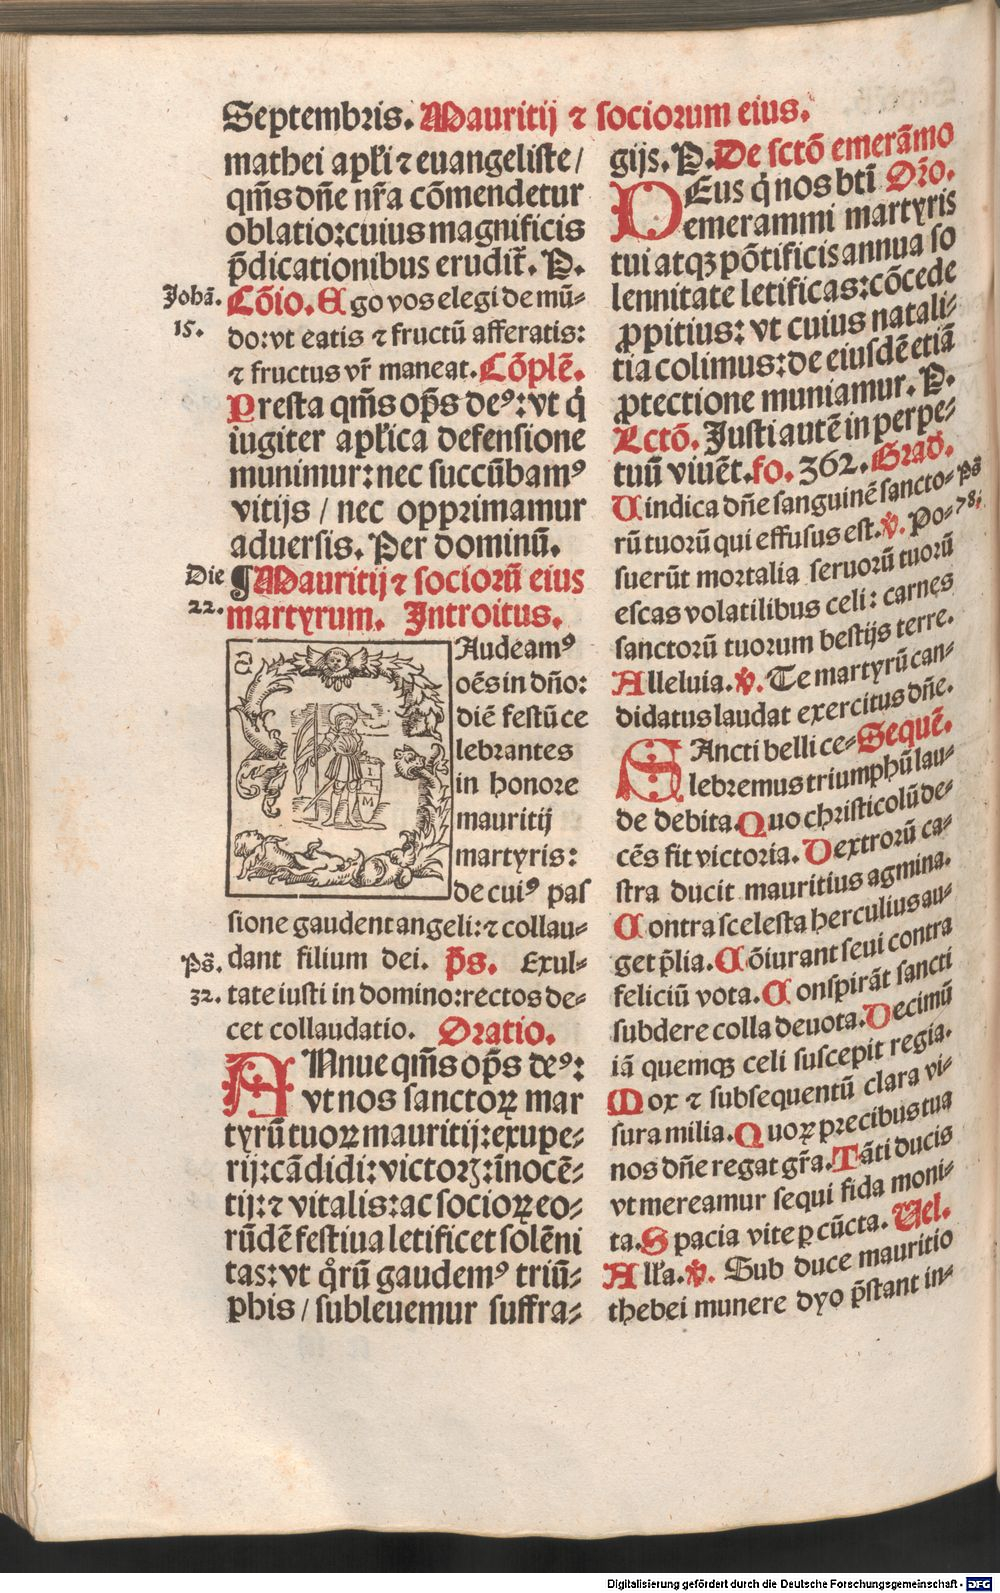 Septembris. Mauritij ⁊ sociorum eius.
mathei apłi ⁊ euangeliste /
qm̄s dn̄e nr̄a cōmendetur
oblatio: cuius magnificis
p̄dicationibus erudit̄. P.
Johā. Cōio. Ego vos elegi de mū-
15. do: vt eatis ⁊ fructū afferatis:
⁊ fructus vr̄ maneat. Cōplē.
Presta qm̄s op̄s deꝰ: vt q̄
iugiter apłica defensione
munimur: nec succūbamꝰ
vitijs / nec opprimamur
aduersis. Per dominū.
Die ¶ Mauritij ⁊ sociorū eius
22. martyrum. Introitus.
G
Audeamꝰ
oēs in dn̄o:
diē festū ce
lebrantes
in honore
mauritij
martyris:
de cuiꝰ pas
sione gaudent angeli: ⁊ collau-
Ps̄. dant filium dei. p̄s. Exul-
32. tate iusti in domino: rectos de-
cet collaudatio. Oratio.
ANnue qm̄s op̄s deꝰ:
vt nos sanctoꝝ mar
tyrū tuoꝝ mauritij: exupe-
rij: cādidi: victorꝫ: īnocē-
tij: ⁊ vitalis: ac socioꝝ eo-
rūdē festiua letificet solēni
tas: vt q̊rū gaudemꝰ triū-
phis / subleuemur suffra-
gijs. P. De sctō emerāmo
DEus q̄ nos btī Orō.
emerammi martyris
tui atqꝫ pōtificis annua so
lennitate letificas: cōcede
ꝓpitius: vt cuius natali-
tia colimus: de eiusdē etiā
ꝓtectione muniamur. P.
Lctō. Justi autē in perpe-
tuū viuēt. fo. 362. Grad̄.
Uindica dn̄e sanguinē sancto- ps̄
rū tuorū qui effusus est. ℣. Po- 78.
suerūt mortalia seruorū tuorū
escas volatilibus celi: carnes
sanctorū tuorum bestijs terre.
Alleluia. ℣. Te martyrū can-
didatus laudat exercitus dn̄e.
SAncti belli ce- Sequē.
lebremus triumphū lau-
de debita. Quo christicolū de-
cēs fit victoria. Dextrorū ca-
stra ducit mauritius agmina.
Contra scelesta herculius au-
get p̄lia. Cōiurant seui contra
feliciū vota. Conspirāt sancti
subdere colla deuota. Decimū
iā quemqꝫ celi suscepit regia.
Mox ⁊ subsequentū clara vi-
sura milia. Quoꝝ precibus tua
nos dn̄e regat gr̄a. Tāti ducis
vt mereamur sequi fida moni-
ta. Spacia vite ꝑ cūcta. Uel.
Alła. ℣. Sub duce mauritio
thebei munere dyo p̄stant in-
Digitalisierung gefördert durch die Deutsche Forschungsgemeinschaft - DFG